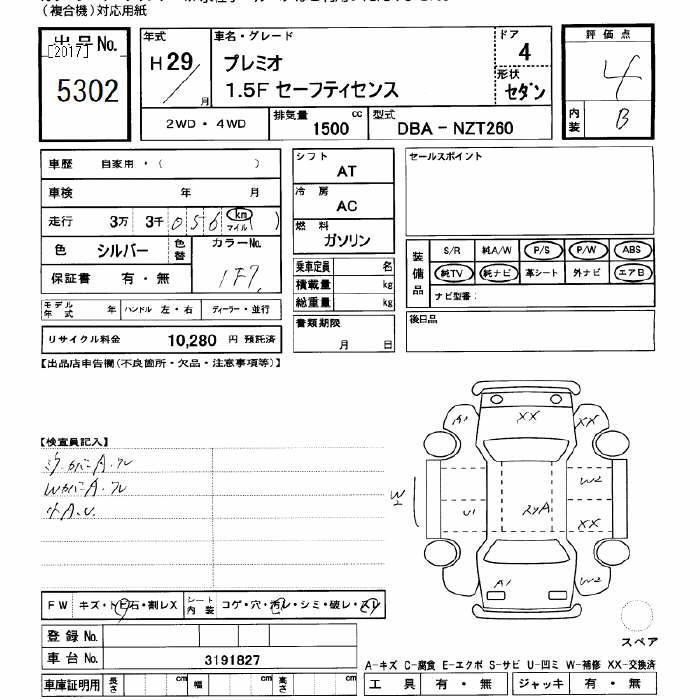 (複合機)対応用紙
出品No.
[2017]
5302
年式
H 29
月
車名・グレード
プレミオ
1.5F セーフティセンス
ドア
4
形状
セダン
評価点
4
内装
B
2WD・4WD
排気量 1500 cc
型式 DBA - NZT260
車歴 自家用・( )
車検 年 月
走行 3万 3千 0 5 6 km マイル ( )
色 シルバー 色替 カラーNo.
1F7
保証書 有・無
モデル年式 年 ハンドル 左・右 ディーラー・並行
リサイクル料金 10,280 円 預託済
シフト
AT
冷房
AC
燃料
ガソリン
乗車定員 名
積載量 kg
総重量 kg
書類期限
月 日
セールスポイント
装備品
S/R 純A/W P/S P/W ABS
純TV 純ナビ 革シート 外ナビ エアB
ナビ型番:
後日品
【出品店申告欄(不良箇所・欠品・注意事項等)】
【検査員記入】
ミラーカバーA.スレ
WカバーA.スレ
小A.U.
A1 XX XX
W2
W1 U1 スレA
XX
A1 W2
スペア
FW キズ・トビ石・割レX
シート内装 コゲ・穴・汚レ・シミ・破レ・スレ
登録No.
車台No. 3191827
車庫証明用 長さ cm 幅 cm 高さ cm
A-キズ C-腐食 E-エクボ S-サビ U-凹ミ W-補修 XX-交換済
工具 有・無 ジャッキ 有・無